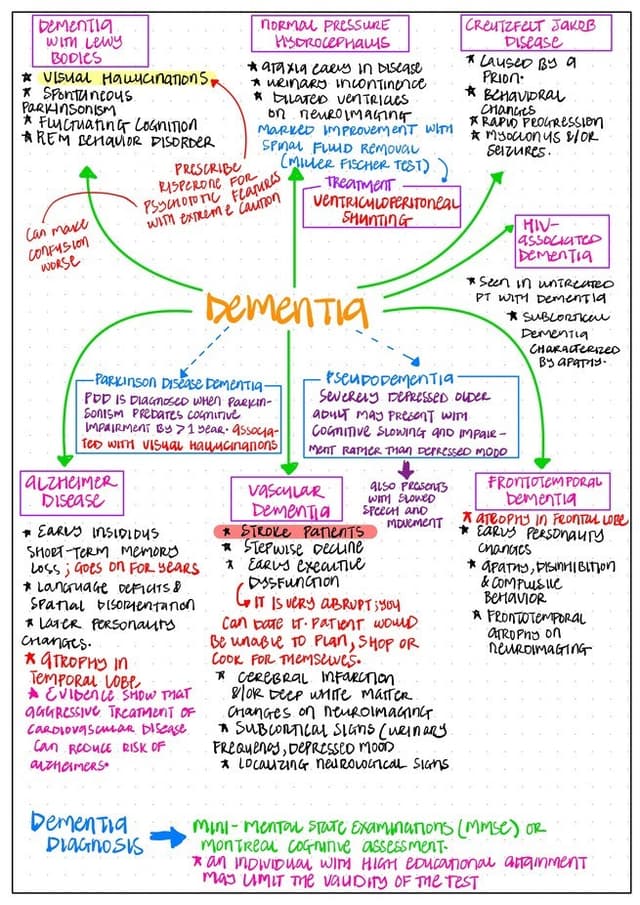 DEMENTIA
WITH LEWY
BODIES
* VISUAL HALLUCINATIONS
* SPONTANEOUS
PARKINSONISM
* FLUCTUATING COGNITION
* REM BEHAVIOR DISORDER
PRESCRIBE
RISPERONE FOR
PSYCHOTIC FEATURES
WITH EXTREME CAUTION
CAN MAKE
CONFUSION
WORSE
NORMAL PRESSURE
HYDROCEPHALUS
* ATAXIA EARLY IN DISEASE
* URINARY INCONTINENCE
* DILATED VENTRICLES
ON NEUROIMAGING
MARKED IMPROVEMENT WITH
SPINAL FLUID REMOVAL
(MILLER FISCHER TEST)
TREATMENT
VENTRICULOPERITONEAL
SHUNTING
CREUTZFELT JAKOB
DISEASE
* CAUSED BY A
PRION.
* BEHAVIORAL
CHANGES
* RAPID PROGRESSION
* MYOCLONUS &/OR
SEIZURES.
HIV-
ASSOCIATED
DEMENTIA
* SEEN IN UNTREATED
PT WITH DEMENTIA
* SUBCORTICAL
DEMENTIA
CHARACTERIZED
BY APATHY.
DEMENTIA
PARKINSON DISEASE DEMENTIA
PDD IS DIAGNOSED WHEN PARKIN-
SONISM PREDATES COGNITIVE
IMPAIRMENT BY >1 YEAR. ASSOCIA-
TED WITH VISUAL HALLUCINATIONS
PSEUDODEMENTIA
SEVERELY DEPRESSED OLDER
ADULT MAY PRESENT WITH
COGNITIVE SLOWING AND IMPAIR-
MENT RATHER THAN DEPRESSED MOOD
ALSO PRESENTS
WITH SLOWED
SPEECH AND
MOVEMENT
ALZHEIMER
DISEASE
* EARLY INSIDIOUS
SHORT-TERM MEMORY
LOSS; GOES ON FOR YEARS
* LANGUAGE DEFICITS &
SPATIAL DISORIENTATION
* LATER PERSONALITY
CHANGES.
* ATROPHY IN
TEMPORAL LOBE
* EVIDENCE SHOW THAT
AGGRESSIVE TREATMENT OF
CARDIOVASCULAR DISEASE
CAN REDUCE RISK OF
ALZHEIMERS.
VASCULAR
DEMENTIA
* STROKE PATIENTS
* STEPWISE DECLINE
* EARLY EXECUTIVE
DYSFUNCTION
IT IS VERY ABRUPT; YOU
CAN DATE IT. PATIENT WOULD
BE UNABLE TO PLAN, SHOP OR
COOK FOR THEMSELVES.
* CEREBRAL INFARCTION
&/OR DEEP WHITE MATTER
CHANGES ON NEUROIMAGING
* SUBCORTICAL SIGNS (URINARY
FREQUENCY, DEPRESSED MOOD
* LOCALIZING NEUROLOGICAL SIGNS
FRONTOTEMPORAL
DEMENTIA
* ATROPHY IN FRONTAL LOBE
* EARLY PERSONALITY
CHANGES
* APATHY, DISINHIBITION
& COMPULSIVE
BEHAVIOR
* FRONTOTEMPORAL
ATROPHY ON
NEUROIMAGING
DEMENTIA
DIAGNOSIS
MINI-MENTAL STATE EXAMINATIONS (MMSE) OR
MONTREAL COGNITIVE ASSESSMENT.
* AN INDIVIDUAL WITH HIGH EDUCATIONAL ATTAINMENT
MAY LIMIT THE VALIDITY OF THE TEST